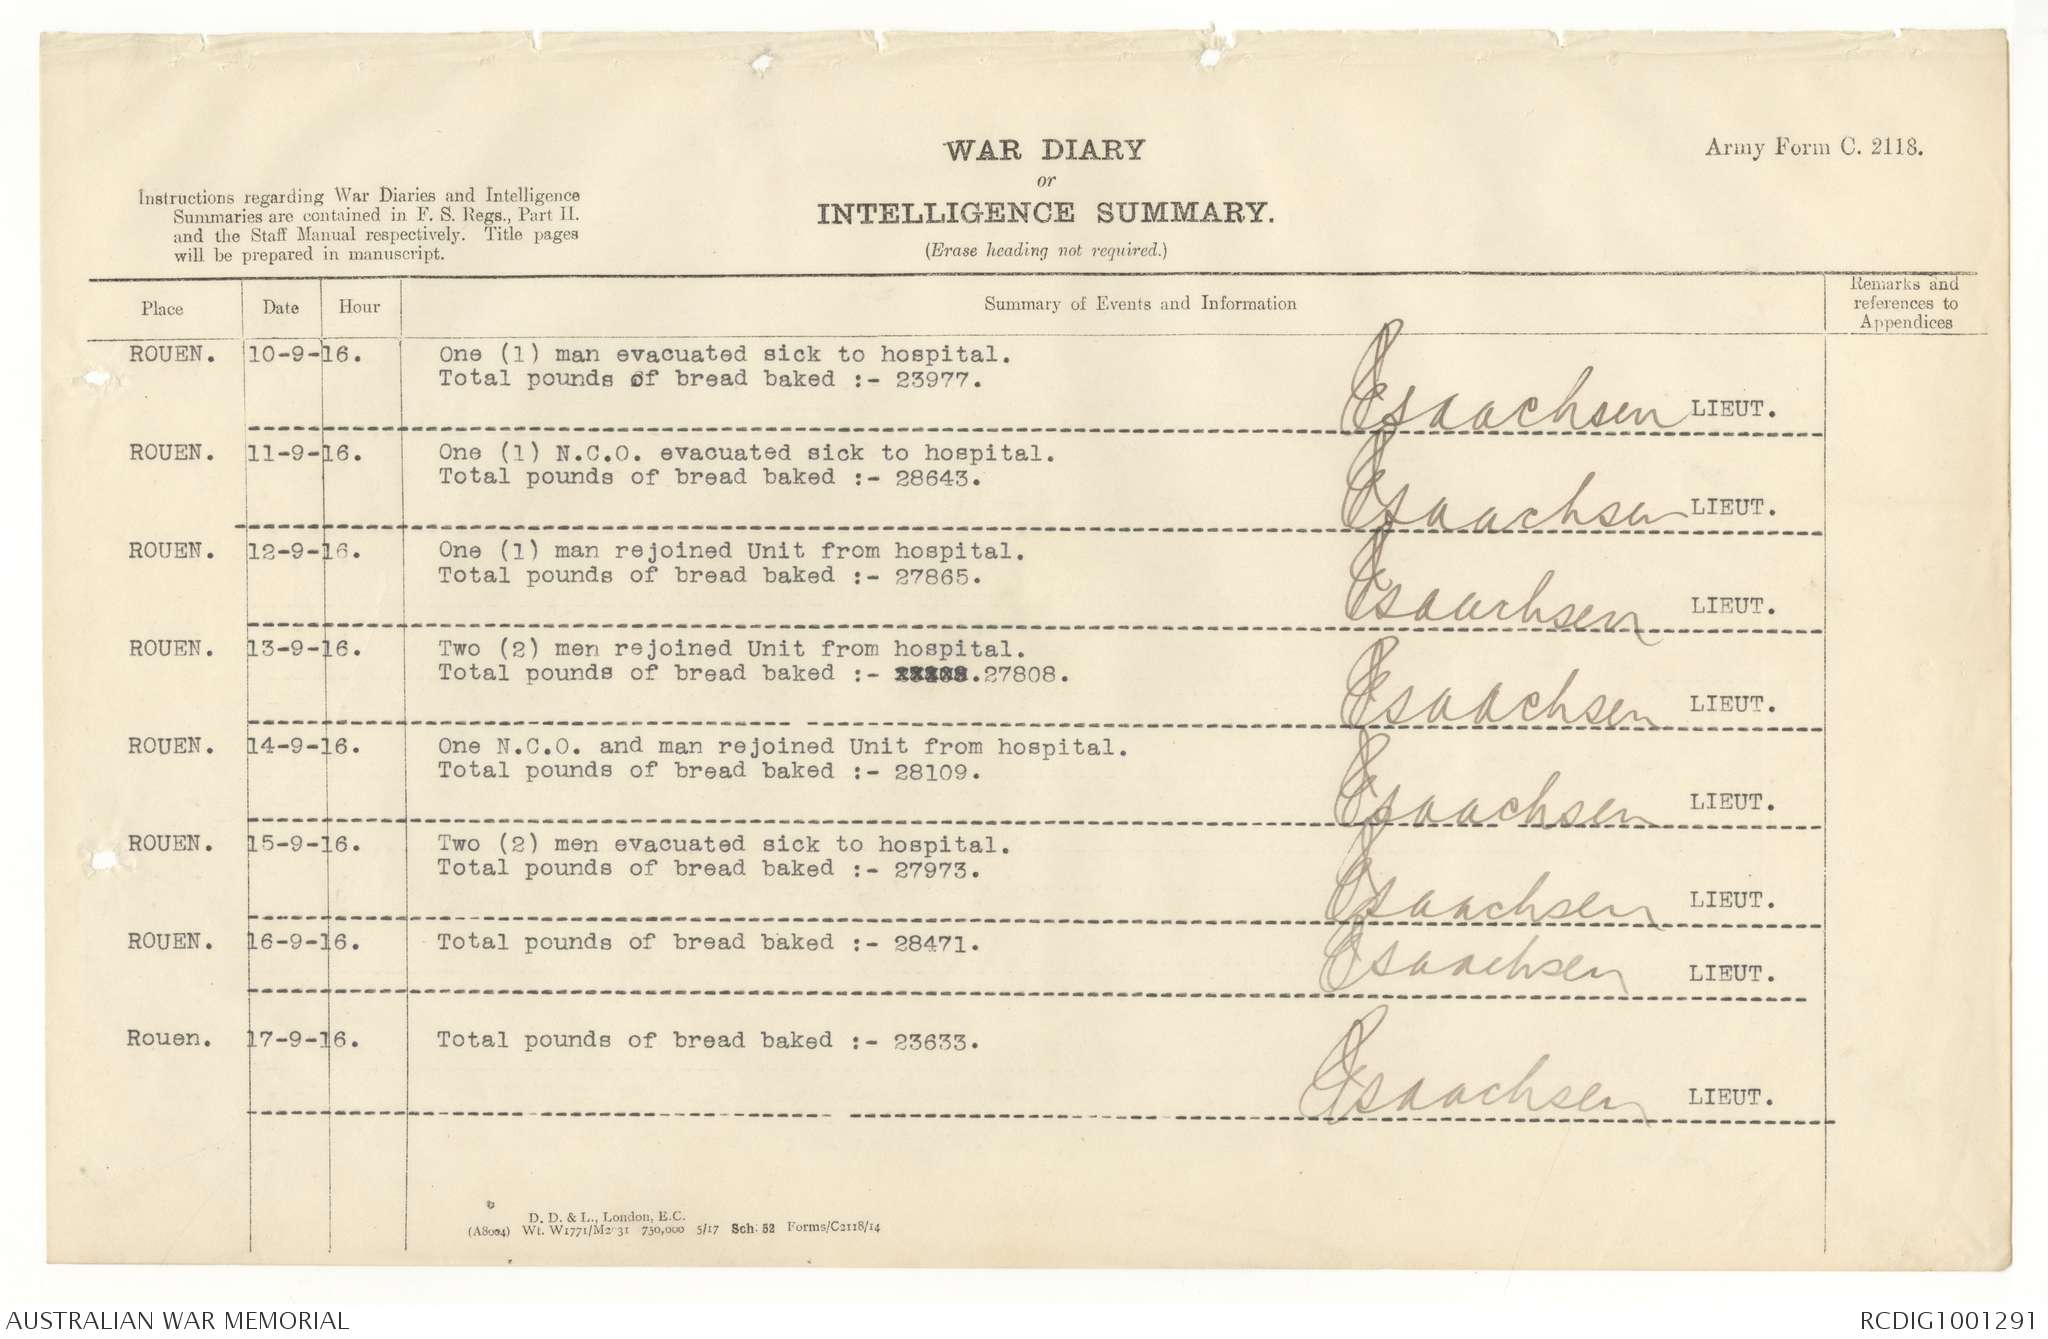 WAR DIARY
or
INTELLIGENCE SUMMARY.
(Erase heading not required.)
Army Form C. 2118.
Instructions regarding War Diaries and Intelligence
Summaries are contained in F. S. Regs., Part II.
and the Staff Manual respectively. Title pages
will be prepared in manuscript.
Place Date Hour Summary of Events and Information Remarks and
references to
Appendices
ROUEN. 10-9-16. One (1) man evacuated sick to hospital.
Total pounds of bread baked :- 23977.
Isaachsen LIEUT.
ROUEN. 11-9-16. One (1) N.C.O. evacuated sick to hospital.
Total pounds of bread baked :- 28643.
Isaachsen LIEUT.
ROUEN. 12-9-16. One (1) man rejoined Unit from hospital.
Total pounds of bread baked :- 27865.
Isaachsen LIEUT.
ROUEN. 13-9-16. Two (2) men rejoined Unit from hospital.
Total pounds of bread baked :- .27808.
Isaachsen LIEUT.
ROUEN. 14-9-16. One N.C.O. and man rejoined Unit from hospital.
Total pounds of bread baked :- 28109.
Isaachsen LIEUT.
ROUEN. 15-9-16. Two (2) men evacuated sick to hospital.
Total pounds of bread baked :- 27973.
Isaachsen LIEUT.
ROUEN. 16-9-16. Total pounds of bread baked :- 28471.
Isaachsen LIEUT.
Rouen. 17-9-16. Total pounds of bread baked :- 23633.
Isaachsen LIEUT.
D. D. & L., London, E.C.
(A8004) Wt. W1771/M2031 750,000 5/17 Sch. 52 Forms/C2118/14
AUSTRALIAN WAR MEMORIAL
RCDIG1001291